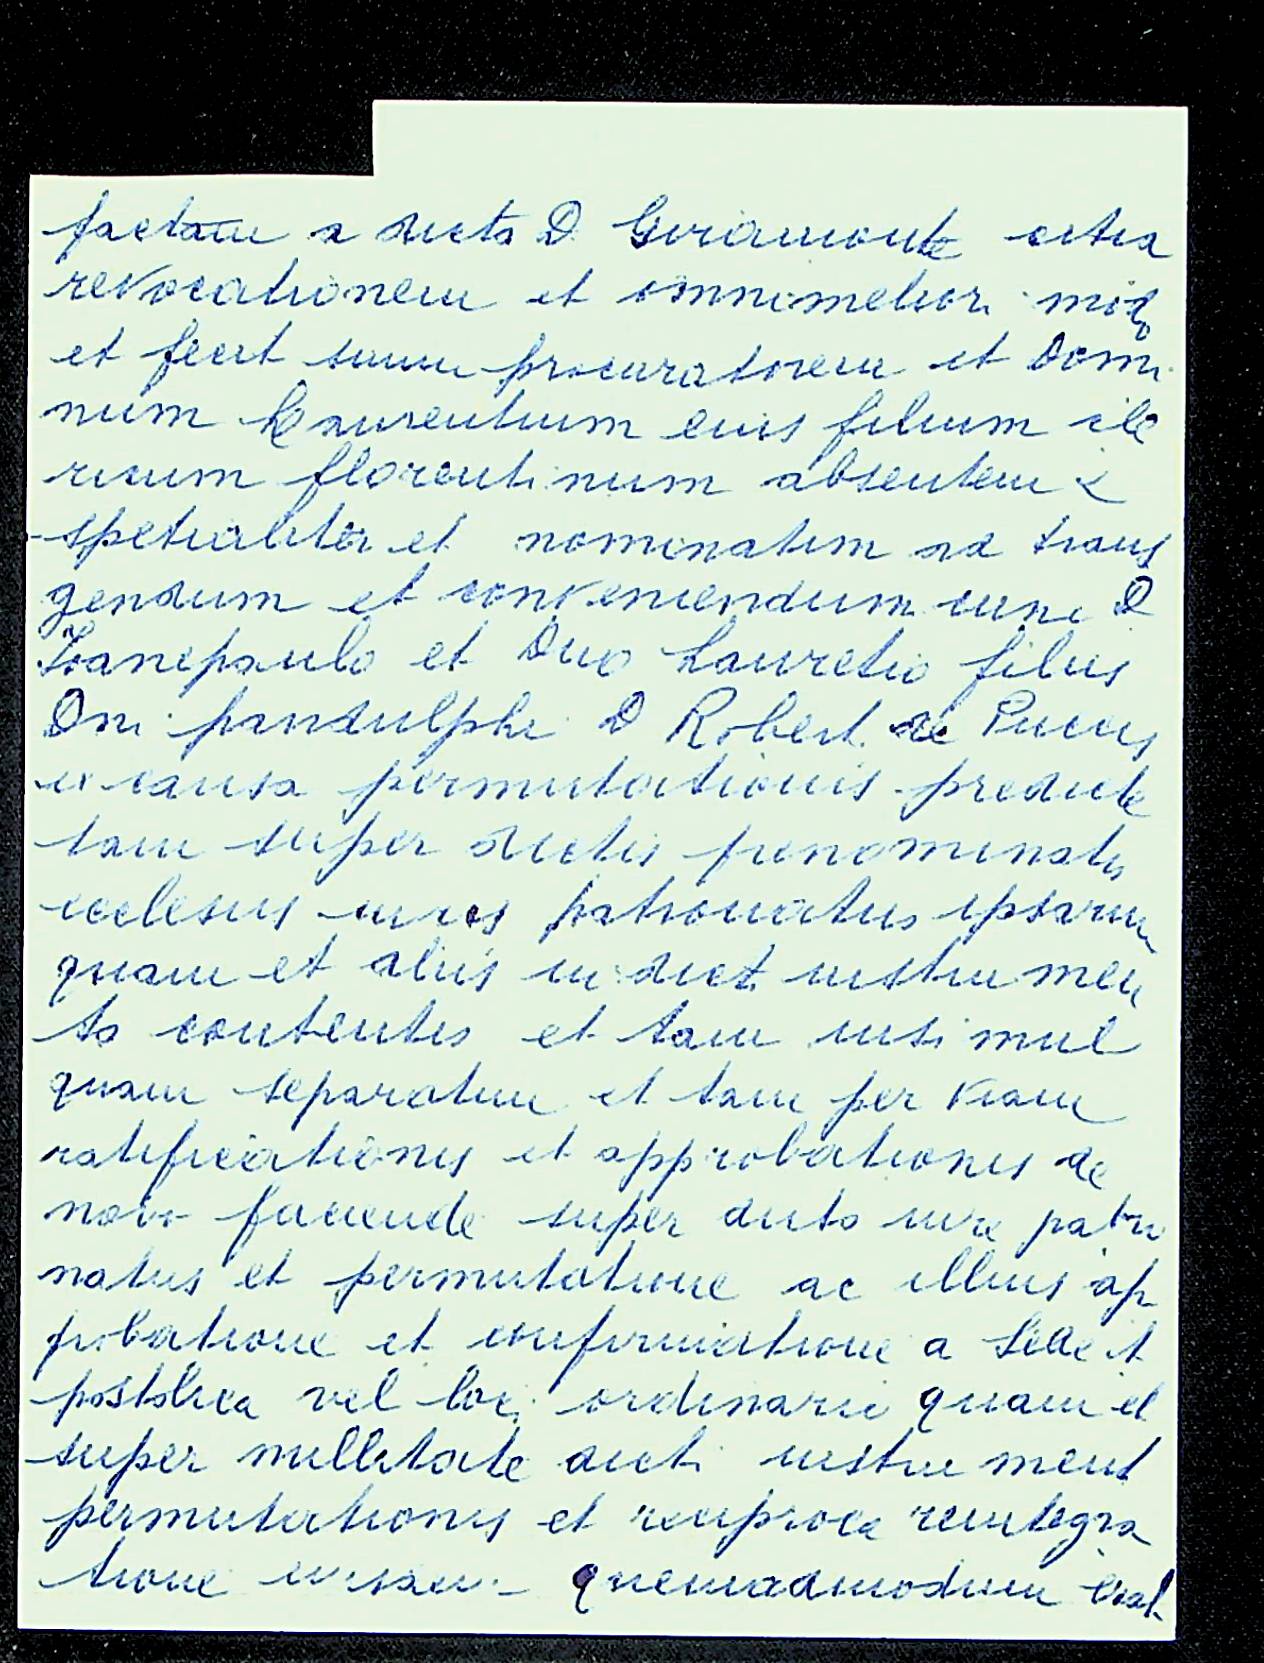 factam a dicto D. Giramonte citra
revocationem et omni meliori mod
et fecit suum procuratorem et Domi
num Laurentium eius filium cle
ricum florentinum absentem &
spetialiter et nominatim ad trans
gendum et conveniendum cum D
Ioanepaulo et Duo Lauretio filiis
Dni pandulphi D Robert. de Puccis
ex causa permutationis predicte
tam super dictis prenominatis
ecclesiis iures patronatus ipsarum
quam et aliis in dict. instrumen
to contentis et tam insimul
quam separatim et tam per viam
ratificationis et approbationis de
novo faciende super dicto iure patro
natus et permutatione ac illius ap
probatione et confirmatione a Sede A
postolica vel loci ordinario quam et
super nullitate dicti instrument
permutationis et reciproca reintegra
tione quemadmodum erat